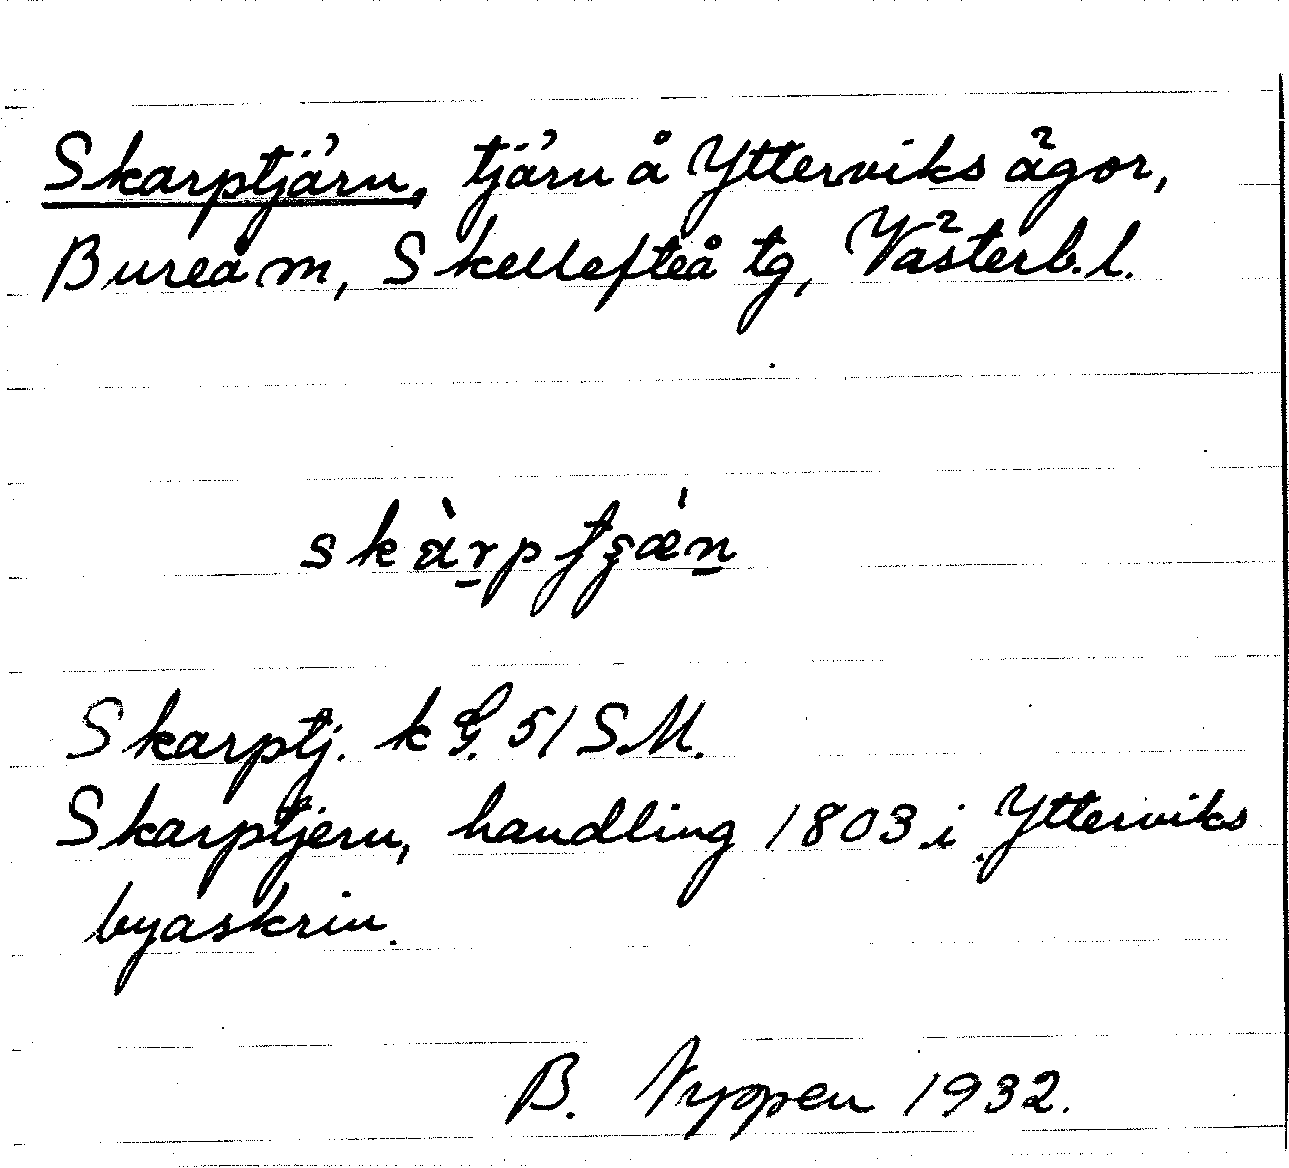 Skarptjärn, tjärn å Ytterviks ägor,
Bureå m, Skellefteå tg, Västerb. l.
skàrptʃǽn
Skarptj. k G. 51 SM.
Skarptjern, handling 1803 i Ytterviks
byaskrin.
B. Nyppen 1932.